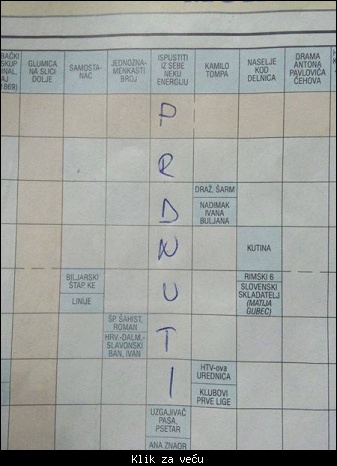 BAČKI
SKUP
INAL,
AJ
1869)
GLUMICA
NA SLICI
DOLJE
SAMOSTA-
NAC
JEDNOZNA-
MENKASTI
BROJ
ISPUSTITI
IZ SEBE
NEKU
ENERGIJU
KAMILO
TOMPA
NASELJE
KOD
DELNICA
DRAMA
ANTONA
PAVLOVIČA
ČEHOVA
P
R
DRAŽ, ŠARM
NADIMAK
IVANA
BULJANA
D
N
KUTINA
BILJARSKI
ŠTAP KE
LINIJE
U
RIMSKI 6
SLOVENSKI
SKLADATELJ
(MATIJA
GUBEC)
ŠP. ŠAHIST,
ROMAN
HRV.-DALM.-
SLAVONSKI
BAN, IVAN
T
I
HTV-ova
UREDNICA
KLUBOVI
PRVE LIGE
UZGAJIVAČ
PASA,
PSETAR
ANA ZNAOR
Klik za veću